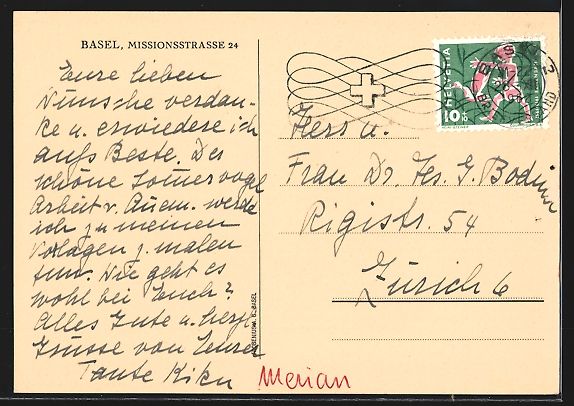 BASEL, MISSIONSSTRASSE 24
Eure lieben
Wünsche verdan-
ke u. erwiedere ich
aufs Beste. Der
schöne Somervogel
Arbeit v. werde
ich zu meinen
Vorlagen z. malen
tun. Wie geht es
wohl bei Euch?
Alles Gute u. herzl.
Grüsse von Eurer
Tante Kiku
Merian
HELVETIA
10
Herr u.
Frau Dr. G. Bodmer
Rigistr. 54
Zürich 6